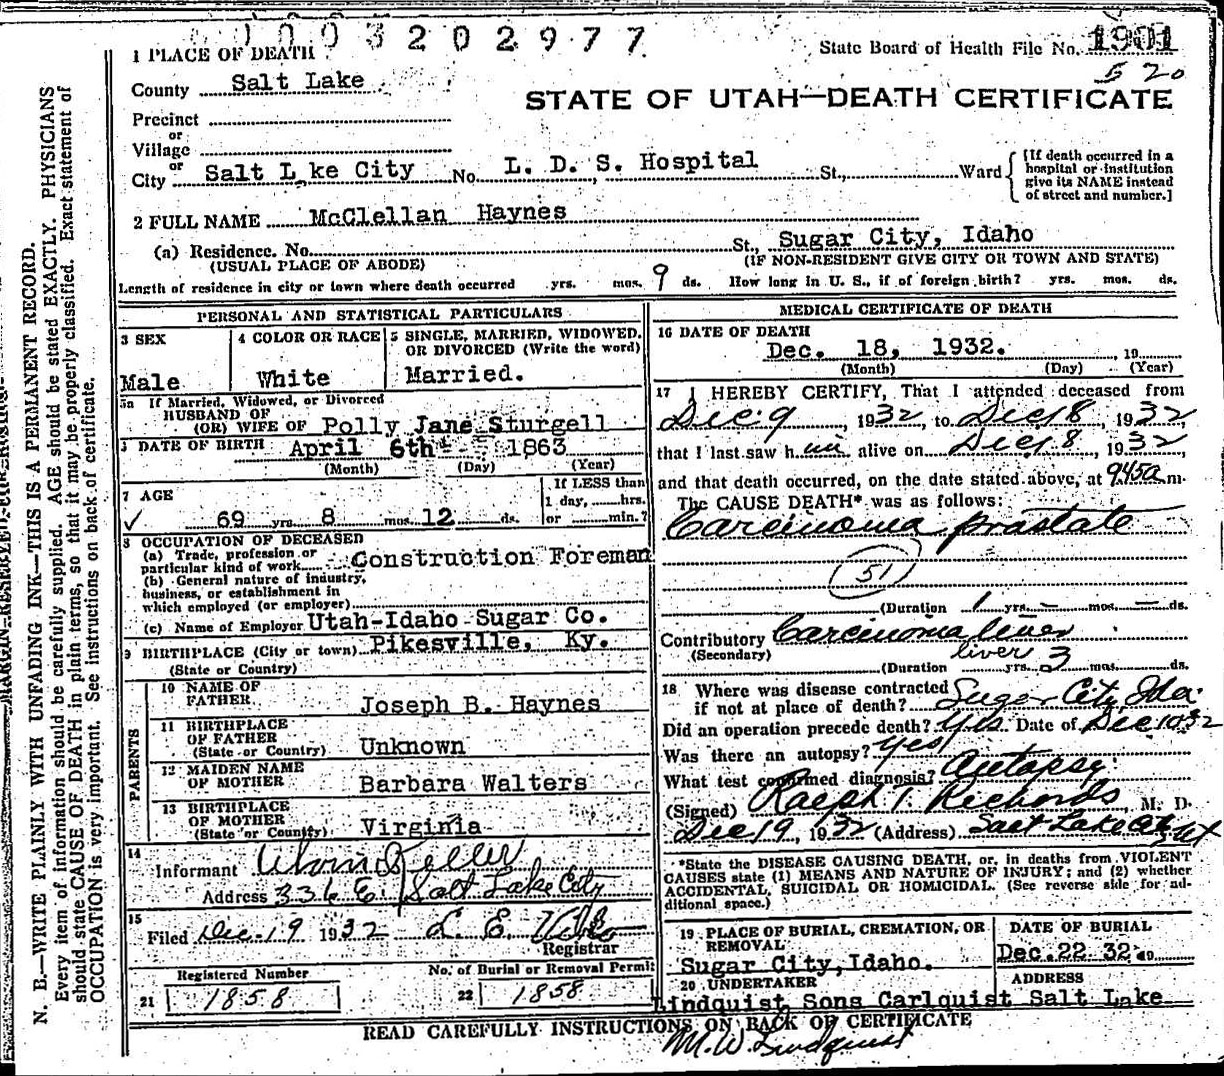 0003202977
1 PLACE OF DEATH
State Board of Health File No. 1901
520
County Salt Lake
STATE OF UTAH—DEATH CERTIFICATE
Precinct
or
Village
or
City Salt Lake City No. L. D. S. Hospital St., Ward {[If death occurred in a hospital or institution give its NAME instead of street and number.]
2 FULL NAME McClellan Haynes
(a) Residence. No. St., Sugar City, Idaho
(USUAL PLACE OF ABODE) (IF NON-RESIDENT GIVE CITY OR TOWN AND STATE)
Length of residence in city or town where death occurred yrs. mos. 9 ds. How long in U. S., if of foreign birth? yrs. mos. ds.
PERSONAL AND STATISTICAL PARTICULARS
3 SEX
Male
4 COLOR OR RACE
White
5 SINGLE, MARRIED, WIDOWED, OR DIVORCED (Write the word)
Married.
5a If Married, Widowed, or Divorced
HUSBAND OF
(OR) WIFE OF Polly Jane Sturgell
6 DATE OF BIRTH April 6th 1863
(Month) (Day) (Year)
7 AGE
✓ 69 yrs. 8 mos. 12 ds.
If LESS than
1 day, hrs.
or min.?
8 OCCUPATION OF DECEASED
(a) Trade, profession or
particular kind of work Construction Foreman
(b) General nature of industry,
business, or establishment in
which employed (or employer)
(c) Name of Employer Utah-Idaho Sugar Co.
9 BIRTHPLACE (City or town) Pikesville, Ky.
(State or Country)
PARENTS
10 NAME OF
FATHER Joseph B. Haynes
11 BIRTHPLACE
OF FATHER
(State or Country) Unknown
12 MAIDEN NAME
OF MOTHER Barbara Walters
13 BIRTHPLACE
OF MOTHER
(State or County) Virginia
14
Informant Keller
Address 336 E. Salt Lake City
15
Filed Dec. 19 1932 L. E.
Registrar
Registered Number
21 1858
No. of Burial or Removal Permit
22 1858
MEDICAL CERTIFICATE OF DEATH
16 DATE OF DEATH
Dec. 18, 1932. , 19
(Month) (Day) (Year)
17 I HEREBY CERTIFY, That I attended deceased from
Dec. 9, 1932, to Dec 18, 1932,
that I last saw h im alive on Dec. 18, 1932,
and that death occurred, on the date stated above, at 945a m.
The CAUSE DEATH* was as follows:
Carcinoma prostate
51
(Duration 1 yrs. – mos. – ds.
Contributory Carcinoma liver
(Secondary) liver 3
(Duration yrs. 3 mos. ds.
18 Where was disease contracted
if not at place of death? Sugar City, Ida.
Did an operation precede death? Yes. Date of Dec 10 32
Was there an autopsy? Yes
What test confirmed diagnosis? Autopsy.
(Signed) Ralph T. Richards, M. D.
Dec 19, 1932 (Address) Salt Lake City Ut
*State the DISEASE CAUSING DEATH, or, in deaths from VIOLENT
CAUSES state (1) MEANS AND NATURE OF INJURY; and (2) whether
ACCIDENTAL, SUICIDAL OR HOMICIDAL. (See reverse side for additional space.)
19 PLACE OF BURIAL, CREMATION, OR
REMOVAL
Sugar City, Idaho.
DATE OF BURIAL
Dec. 22 32 19
20 UNDERTAKER
ADDRESS
Lindquist Sons Carlquist Salt Lake
READ CAREFULLY INSTRUCTIONS ON BACK OF CERTIFICATE
M. W. Lindquist
MARGIN RESERVED FOR BINDING
N. B.—WRITE PLAINLY WITH UNFADING INK—THIS IS A PERMANENT RECORD.
Every item of information should be carefully supplied. AGE should be stated EXACTLY. PHYSICIANS
should state CAUSE OF DEATH in plain terms, so that it may be properly classified. Exact statement of
OCCUPATION is very important. See instructions on back of certificate.